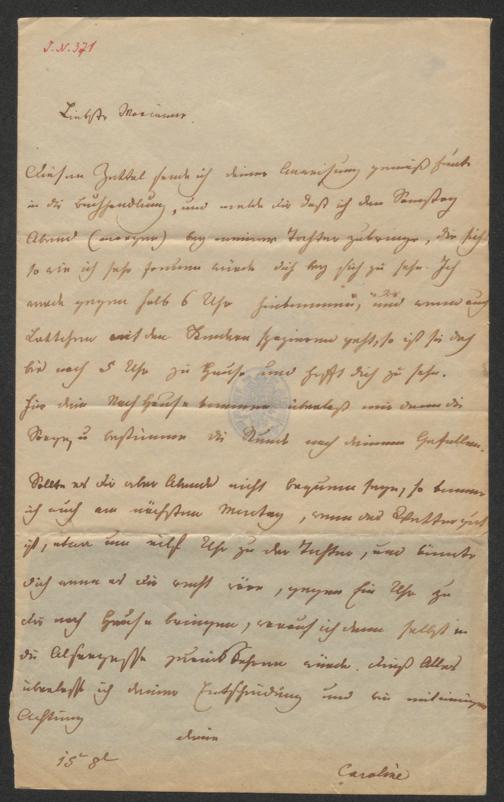 I.N. 371
Liebste Marianne.
Diesen Zettel sende ich deiner Anweisung gemäß heute
in die Buchhandlung, und melde dir daß ich den Samstag
Abend (morgen) bey meiner Tochter zubringe, die sich
so wie ich sehr freuen würde dich bey sich zu sehn. Ich
werde gegen halb 6 Uhr hinkommen, und wenn auch
Lottchen mit den Kindern spazieren geht, so ist sie doch
bis nach 5 Uhr zu Hause und hofft dich zu sehn.
Für dein Nachhause kommen überlaß mir dann die
Sorge, u bestimme die Stunde nach deinem Gefallen.
Sollte es dir aber Abends nicht bequem seyn, so komme
ich auch am nächsten Montag, wenn das Wetter gut
ist, etwa um eilf Uhr zu der Tochter, und könnte
dich wenn es dir recht wäre, gegen Ein Uhr zu
dir nach Hause bringen, worauf ich dann selbst in
die Alsergasse zurück kehren würde. Dieß Alles
überlasse ich deiner Entscheidung und bin mit inniger
Achtung
deine
15 8
Caroline